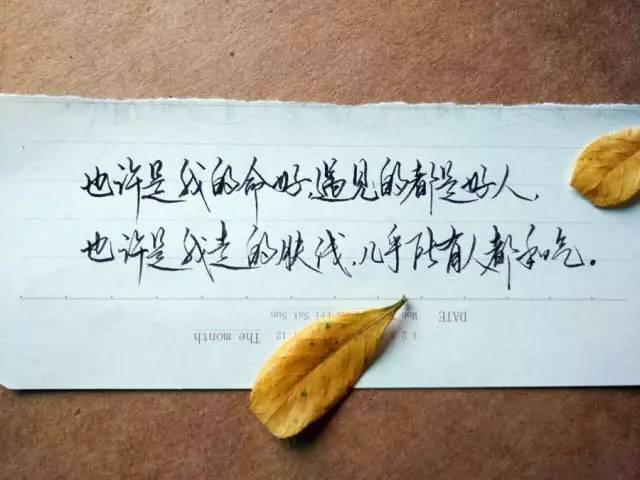 也许是我的命好,遇见的都是好人,
也许是我走的肤浅,几乎所有人都和气。
DATE
Mon Fri Sat Sun
The month